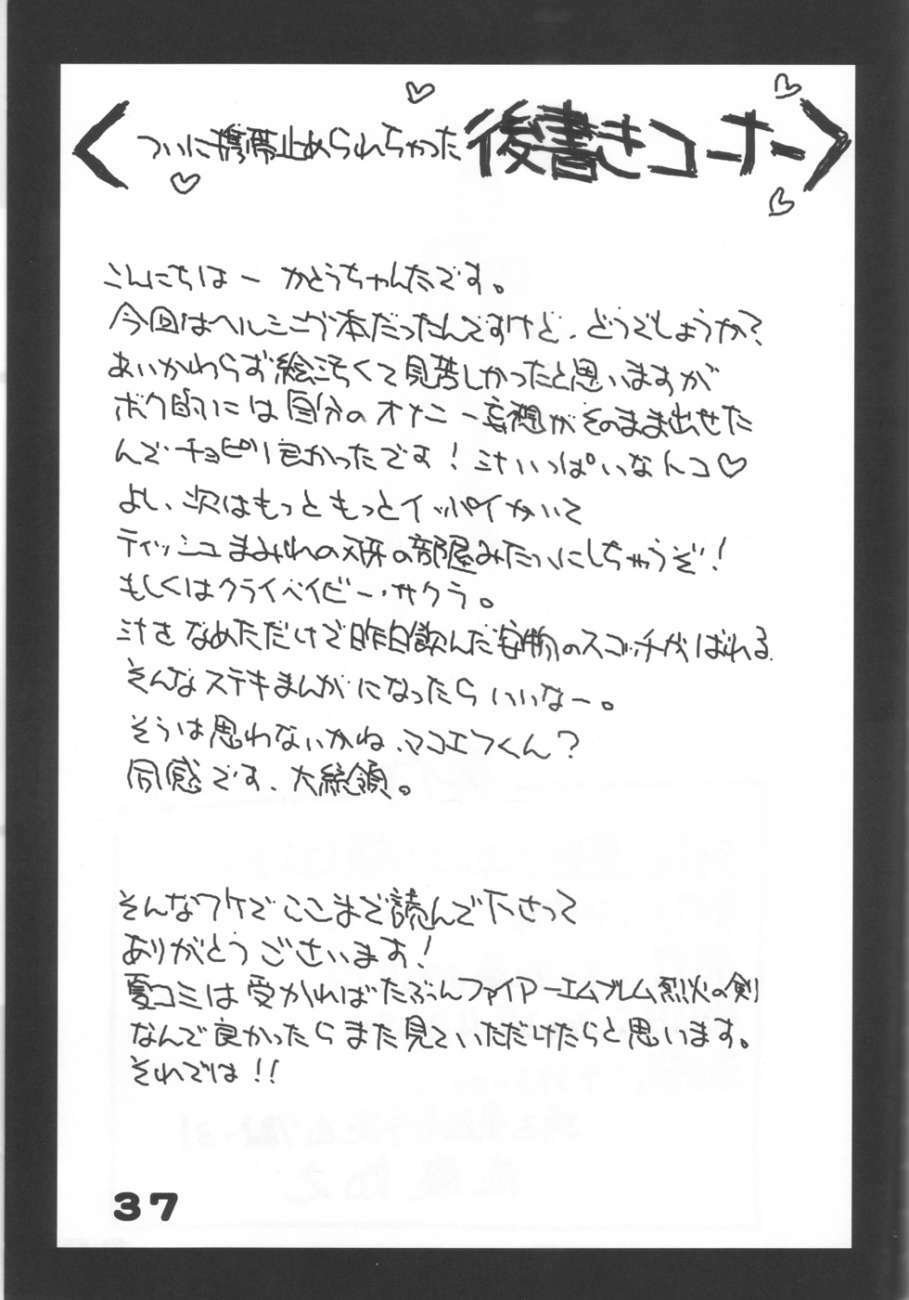 ついに携帯止められちゃった後書きコーナー
こんにちはー かとうちゃんたです。
今回はヘルシング本だったんですけど、どうでしょうか?
あいかわらず絵汚くて見苦しかったと思いますが
ボク的には自分のオナニー妄想がそのまま出せた
んでチョピリ良かったです!汁いっぱいなんコ♡
よし、次はもっともっとイッパイかいて
ティッシュまみれの
の部屋みたいにしちゃうぞ!
もしくはクライベイビー・サクラ。
汁をなめただけで昨日飲んだ安物のスコッチがばれる
そんなステキまんがになったらいいなー。
そうは思わないかね、マコエフくん?
同感です、大統領。
そんなワケでここまで読んで下さって
ありがとうございます!
夏コミは受かればたぶんファイアーエムブレム烈火の剣
なんで良かったらまた見ていただけたらと思います。
それでは!!
37